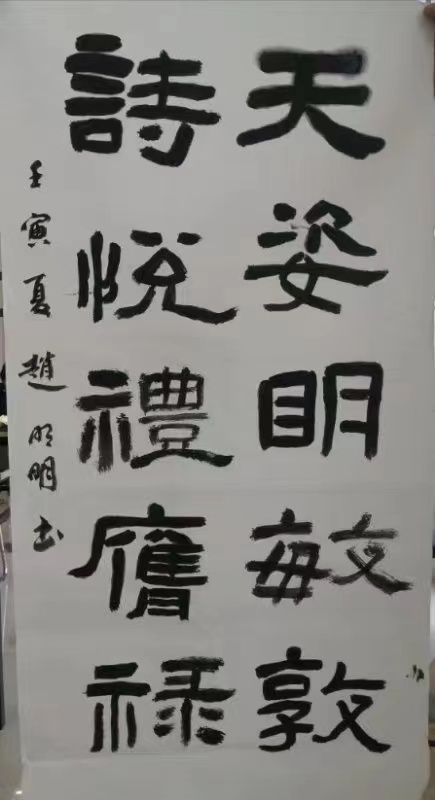 天姿明敏敦
詩悅禮膺禄
壬寅夏趙明明书